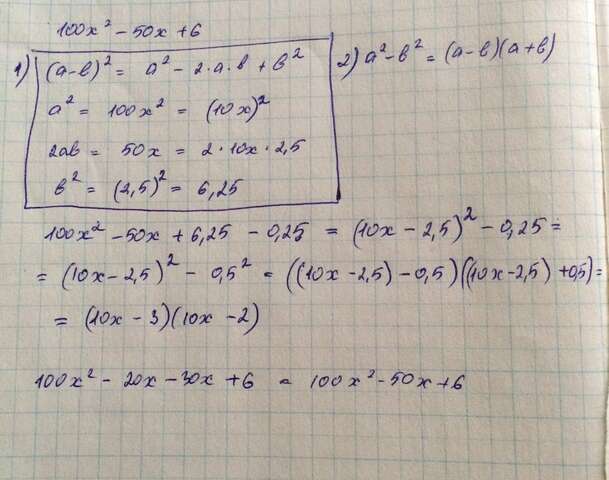 100x² - 50x + 6
1) (a-в)² = a² - 2·a·в + в²
2) a² - в² = (a-в)(a+в)
a² = 100x² = (10x)²
2aв = 50x = 2·10x·2,5
в² = (2,5)² = 6,25
100x² - 50x + 6,25 - 0,25 = (10x - 2,5)² - 0,25 =
= (10x - 2,5)² - 0,5² = ((10x - 2,5) - 0,5)((10x - 2,5) + 0,5) =
= (10x - 3)(10x - 2)
100x² - 20x - 30x + 6 = 100x² - 50x + 6